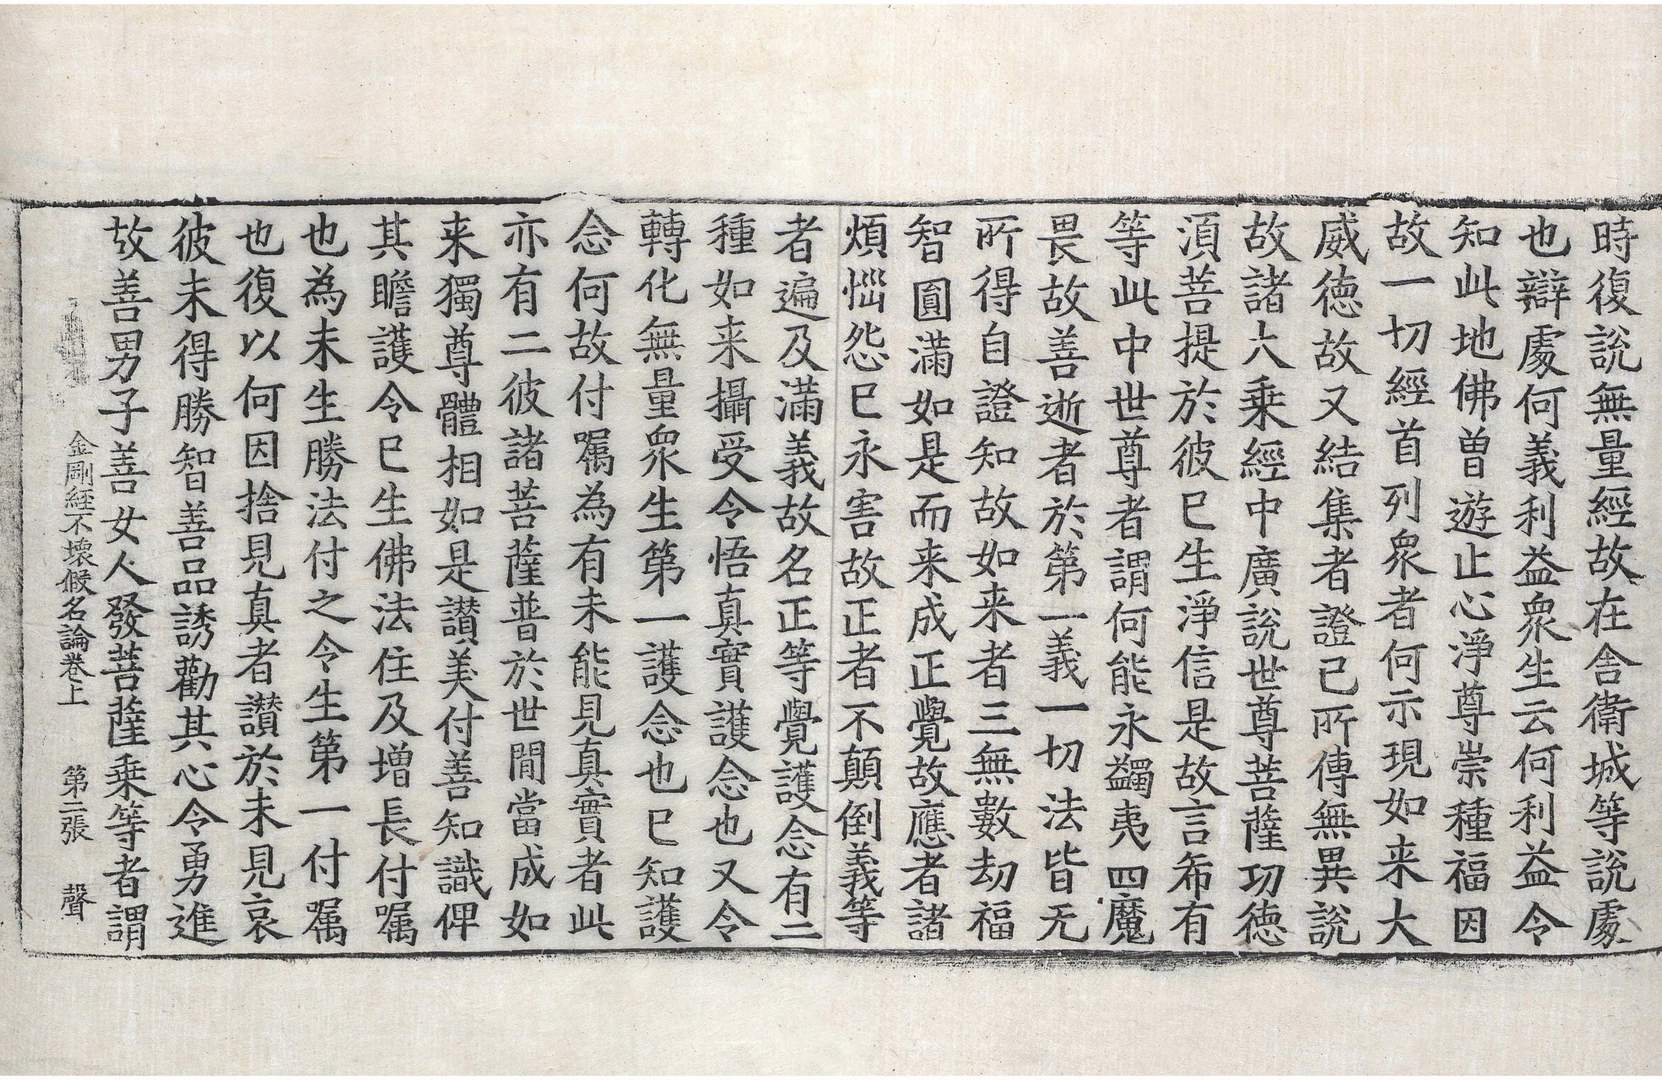 時復説無量經故在舎衛城等説處
也辯處何義利益衆生云何利益令
知此地佛曽遊止心淨尊崇種福因
故一切經首列衆者何示現如来大
威德故又結集者證已所傳無異説
故諸大乗經中廣説世尊菩薩功德
湏菩提於彼已生淨信是故言希有
等此中世尊者謂何能永蠲夷四魔
畏故善逝者於第一義一切法皆无
所得自證知故如来者三無數劫福
智圓滿如是而来成正覺故應者諸
煩惱怨已永害故正者不顛倒義等
者遍及滿義故名正等覺護念有二
種如来攝受令悟真實護念也又令
轉化無量衆生第一護念也已知護
念何故付嘱為有未能見真實者此
亦有二彼諸菩薩普於世間當成如
来獨尊體相如是讃美付善知識俾
其瞻護令已生佛法住及増長付嘱
也為未生勝法付之令生第一付嘱
也復以何因捨見真者讃於未見哀
彼未得勝智善品誘勸其心令勇進
故善男子善女人發菩薩乗等者謂
金剛經不壞假名論卷上 第二張 聲